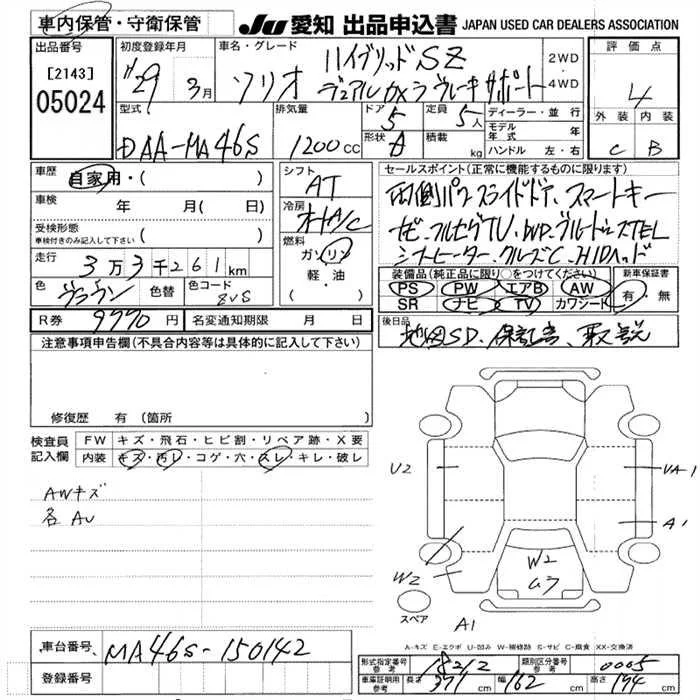 車内保管・守衛保管 JU 愛知 出品申込書 JAPAN USED CAR DEALERS ASSOCIATION
出品番号 [2143] 05024
初度登録年月 H29 3月
車名・グレード ソリオ ハイブリッドSZ
デュアルカメラブレーキサポート
2WD・4WD
評価点 4
外装 内装
C B
型式 DAA-MA46S
排気量 1200cc
ドア 5
形状
定員 5人
積載 kg
ディーラー・並行
モデル年式 年
ハンドル 左・右
車歴 自家用・( )
車検 年 月( 日)
受検形態 ( )
車検付きのみ記入して下さい
走行 3万3千261km
色 ブラウン 色替 色コード
R券 9770円 名変通知期限 月 日
シフト AT
冷房 オートA/C
燃料 ガソリン
軽・油
セールスポイント(正常に機能するものに限ります)
両側パワースライドドア、スマートキー
ナビ・フルセグTV、DVD、ブルートゥースTEL
シートヒーター、クルーズC、HIDヘッド
装備品(純正品に限り○をつけてください) 新車保証書
PS PW エアB AW
SR ナビ TV カワシート
有・無
後日品 地図SD、保証書、取説
注意事項申告欄(不具合内容等は具体的に記入して下さい)
修復歴 有(箇所
検査員記入欄
FW キズ・飛石・ヒビ割・リペア跡・X要
内装 キズ・汚レ・コゲ・穴・スレ・キレ・破レ
AWキズ
各AU
U2 UA-1
A1
W2 W2
ムラ
スペア
A1
A-キズ E-エクボ U-凹み W-補修跡 S-サビ C-腐食 XX-交換済
車台番号 MA46S-150142
登録番号
形式指定番号 参考 18212 類別区分番号 参考 0005
車庫証明用 参考 長さ 371cm 幅 162cm 高さ 174cm